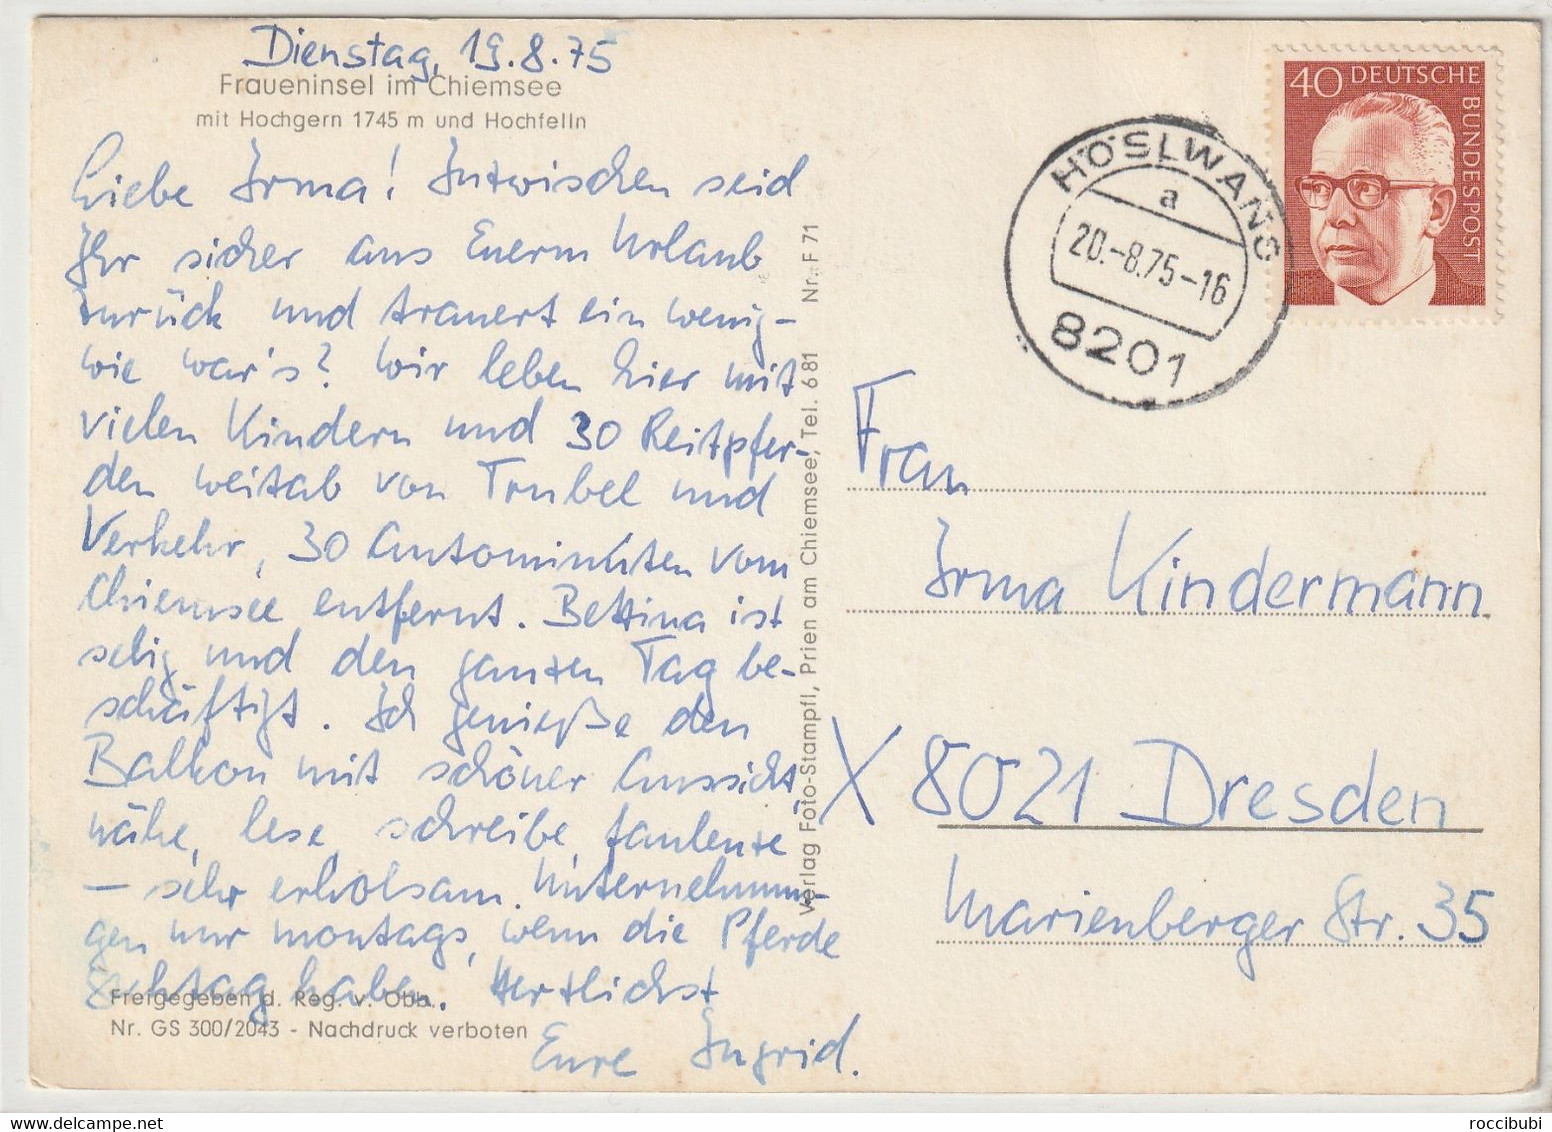 Dienstag, 19.8.75
Fraueninsel im Chiemsee
mit Hochgern 1745 m und Hochfelln
Liebe Irma! Inzwischen seid
Ihr sicher aus Eurem Urlaub
zurück und trauert ein wenig –
wie war's? Wir leben hier mit
vielen Kindern und 30 Reitpfer-
den weitab von Trubel und
Verkehr, 30 Autominuten vom
Chiemsee entfernt. Bettina ist
selig und den ganzen Tag be-
schäftigt. Ich genieße den
Balkon mit schöner Aussicht,
nähe, lese, schreibe, faulenze
– sehr erholsam. Unternehmun-
gen nur montags, wenn die Pferde
Ruhtag haben. Herzlichst
Eure Ingrid.
Freigegeben d. Reg. v. Obb.
Nr. GS 300/2043 - Nachdruck verboten
Verlag Foto-Stampfl, Prien am Chiemsee, Tel. 681 Nr. F 71
HÖSLWANG
a
20.-8.75-16
8201
40 DEUTSCHE
BUNDESPOST
Frau
Irma Kindermann
X 8021 Dresden
Marienberger Str. 35
roccibubi